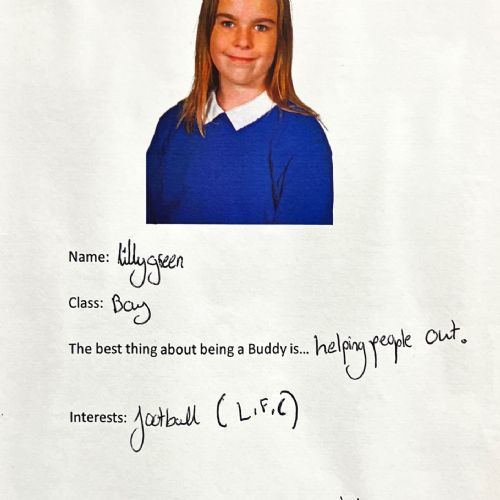 Name: Lilly green
Class: Bay
The best thing about being a Buddy is... helping people out.
Interests: football (L.F.C)